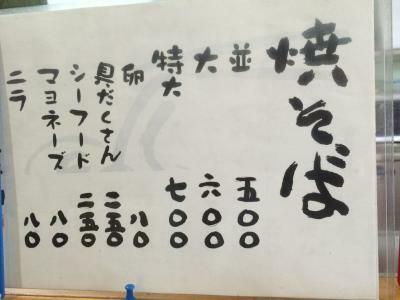 焼そば
並 五〇〇
大 六〇〇
特大 七〇〇
卵 八〇
具だくさん 二五〇
シーフード 二五〇
マヨネーズ 八〇
ニラ 八〇